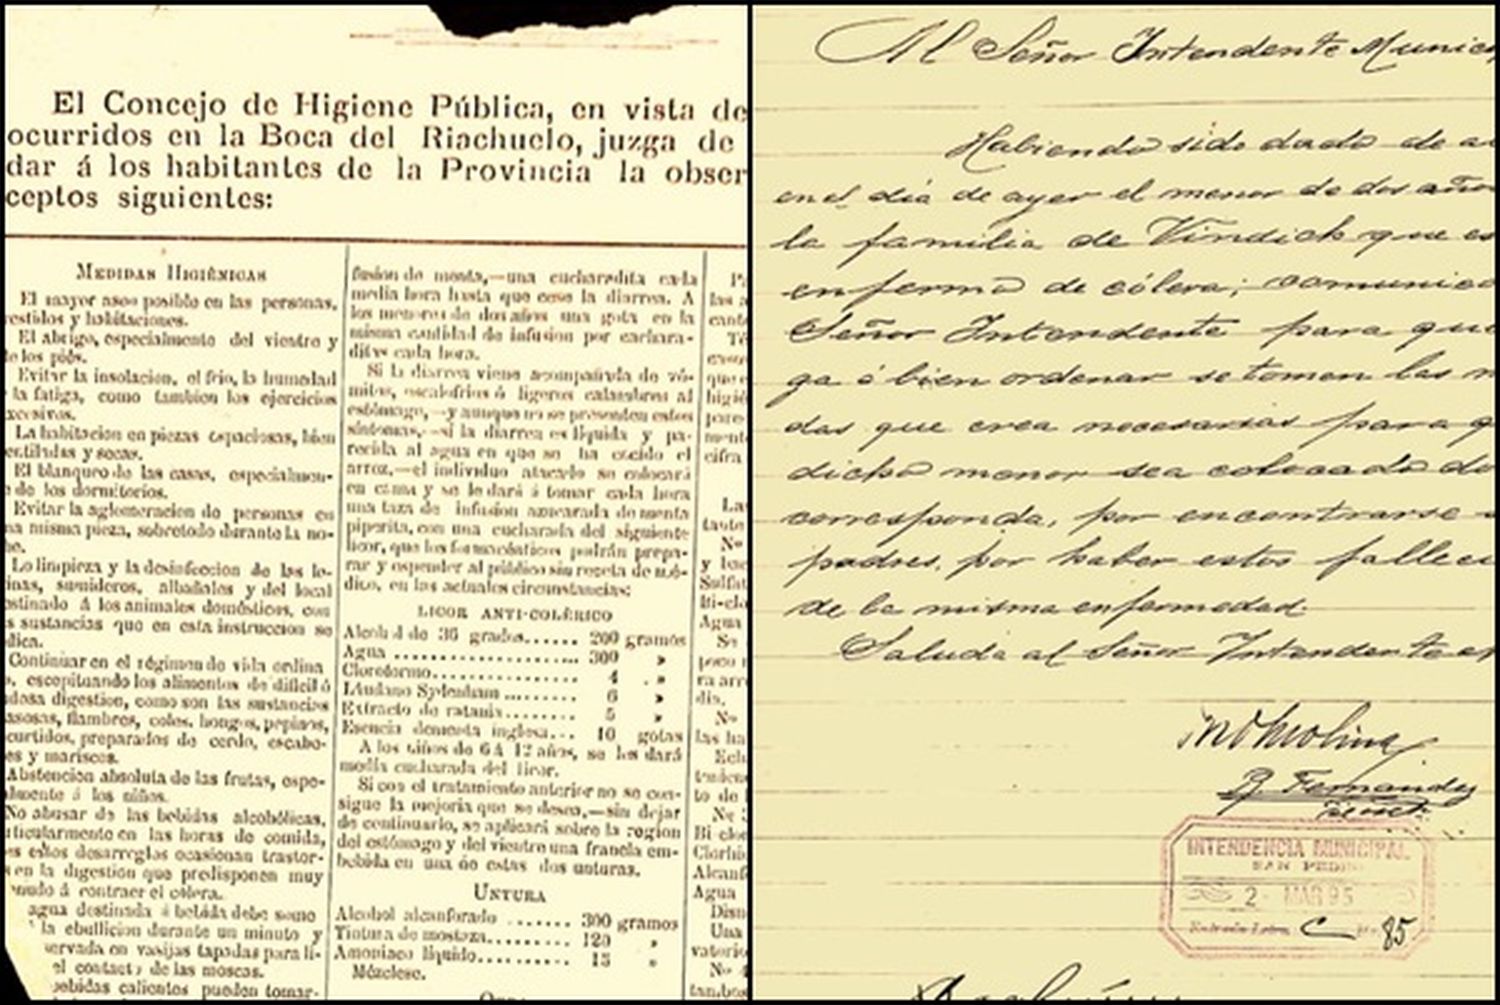 El Concejo de Higiene Pública, en vista de
ocurridos en la Boca del Riachuelo, juzga de
dar á los habitantes de la Provincia la obser
ceptos siguientes:
MEDIDAS HIGIÉNICAS
El mayor aseo posible en las personas,
estidos y habitaciones.
El abrigo, especialmente del vientre y
e los piés.
Evitar la insolacion, el frio, la humedad
la fatiga, como tambien los ejercicios
xcesivos.
La habitacion en piezas espaciosas, bien
entiladas y secas.
El blanqueo de las casas, especialmen-
e de los dormitorios.
Evitar la aglomeracion de personas en
na misma pieza, sobretodo durante la no-
he.
Lo limpieza y la desinfeccion de las le-
inas, sumideros, albañales y del local
estinado á los animales domésticos, con
s sustancias que en esta instruccion se
dica.
Continuar en el régimen de vida ordina
o, esceptuando los alimentos de dificil ó
dosa digestion, como son las sustancias
asosas, fiambres, coles, hongos, pepinos,
curtidos, preparados de cerdo, escabe-
es y mariscos.
Abstencion absoluta de las frutas, espe-
almente á los niños.
No abusar de las bebidas alcohólicas,
rticularmente en las horas de comida,
es estos desarreglos ocasionan trastor-
s en la digestion que predisponen muy
enudo á contraer el cólera.
agua destinada á bebida debe some
la ebullicion durante un minuto y
servada en vasijas tapadas para li-
el contacto de las moscas.
bebidas calientes pueden tomar-
fusion de menta,—una cucharadita cada
media hora hasta que cese la diarrea. A
los menores de dos años una gota en la
misma cantidad de infusion por cuchara-
ditas cada hora.
Si la diarrea viene acompañada de vó-
mitos, escalofrios ó ligeros calambres al
estómago,—y aunque no se presenten estos
síntomas,—si la diarrea es líquida y pa-
recida al agua en que se ha cocido el
arroz,—el individuo atacado se colocará
en cama y se le dará á tomar cada hora
una taza de infusion azucarada de menta
piperita, con una cucharada del siguiente
licor, que los farmacéuticos podrán prepa-
rar y espender al público sin receta de mé-
dico, en las actuales circunstancias:
LICOR ANTI-COLÉRICO
Alcohol de 36 grados...... 200 gramos
Agua ...................... 300 »
Cloroformo................. 4 »
Láudano Sydenham ......... 6 »
Extracto de ratania........ 5 »
Esencia de menta inglesa... 10 gotas
A los niños de 6 á 12 años, se les dará
media cucharada del licor.
Si con el tratamiento anterior no se con-
sigue la mejoria que se desea,—sin dejar
de continuarlo, se aplicará sobre la region
del estómago y del vientre una franela em-
bebida en una de estas dos unturas.
UNTURA
Alcohol alcanforado ...... 300 gramos
Tintura de mostaza........ 120 »
Amoniaco líquido.......... 15 »
Mézclese.
Al Señor Intendente Munici
Habiendo sido dado de a
en el dia de ayer el menor de dos años
la familia de Vindick que es
enfermo de cólera; comunico
Señor Intendente para que
ga á bien ordenar se tomen las m
das que crea necesarias para q
dicho menor sea colocado do
corresponda, por encontrarse s
padres, por haber estos falleci
de la misma enfermedad.
Saluda al Señor Intendente
Molina
Fernandez
INTENDENCIA MUNICIPAL
SAN PEDRO
2- MAR 95
Entrada Letra C No 85